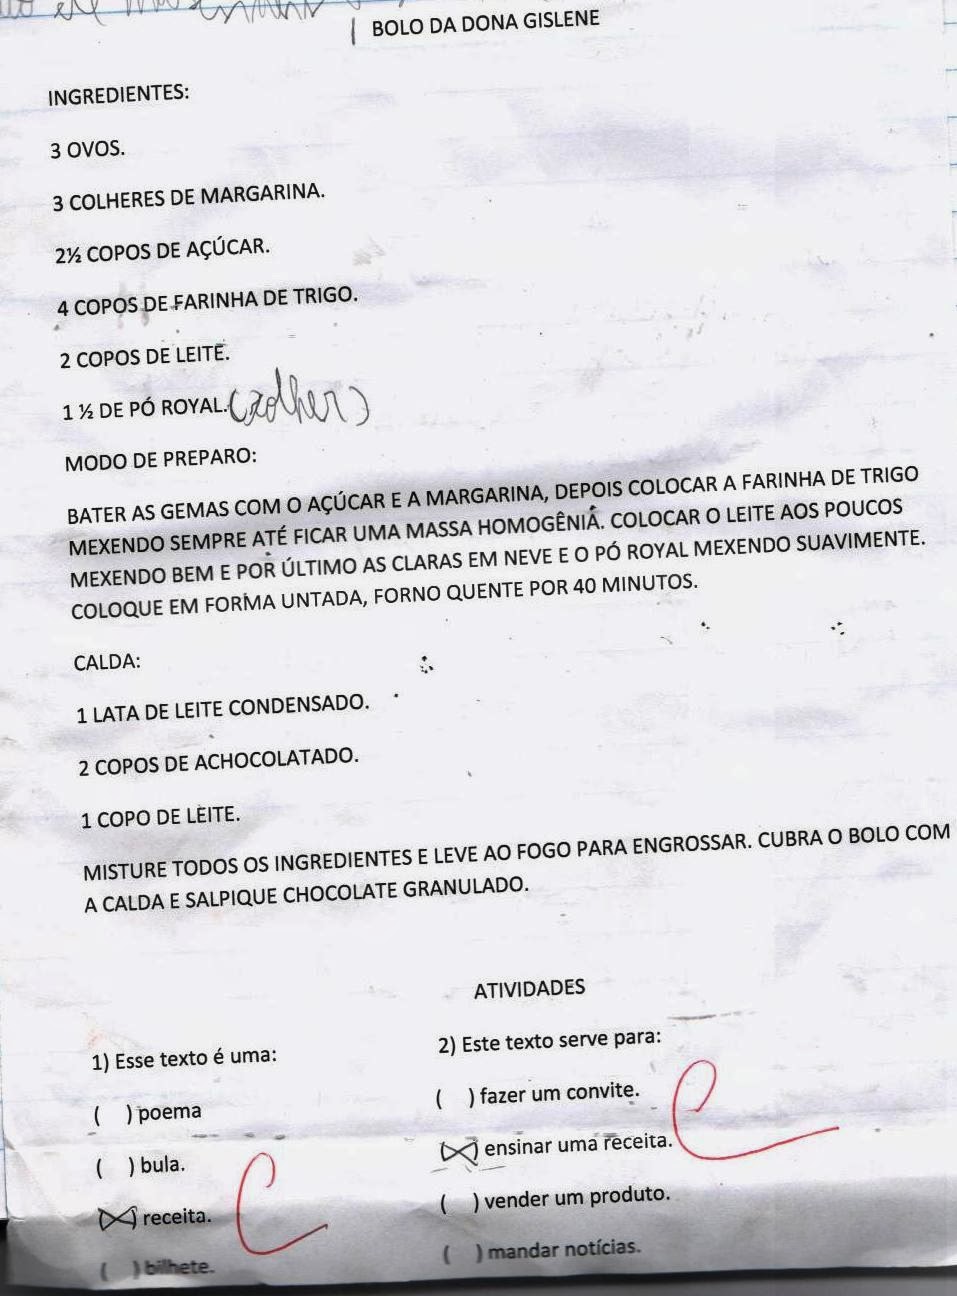 BOLO DA DONA GISLENE
INGREDIENTES:
3 OVOS.
3 COLHERES DE MARGARINA.
2½ COPOS DE AÇÚCAR.
4 COPOS DE FARINHA DE TRIGO.
2 COPOS DE LEITE.
1 ½ DE PÓ ROYAL. (colher)
MODO DE PREPARO:
BATER AS GEMAS COM O AÇÚCAR E A MARGARINA, DEPOIS COLOCAR A FARINHA DE TRIGO
MEXENDO SEMPRE ATÉ FICAR UMA MASSA HOMOGÊNIA. COLOCAR O LEITE AOS POUCOS
MEXENDO BEM E POR ÚLTIMO AS CLARAS EM NEVE E O PÓ ROYAL MEXENDO SUAVIMENTE.
COLOQUE EM FORMA UNTADA, FORNO QUENTE POR 40 MINUTOS.
CALDA:
1 LATA DE LEITE CONDENSADO.
2 COPOS DE ACHOCOLATADO.
1 COPO DE LEITE.
MISTURE TODOS OS INGREDIENTES E LEVE AO FOGO PARA ENGROSSAR. CUBRA O BOLO COM
A CALDA E SALPIQUE CHOCOLATE GRANULADO.
ATIVIDADES
1) Esse texto é uma:
( ) poema
( ) bula.
(X) receita.
( ) bilhete.
C
2) Este texto serve para:
( ) fazer um convite.
(X) ensinar uma receita.
( ) vender um produto.
( ) mandar notícias.
C